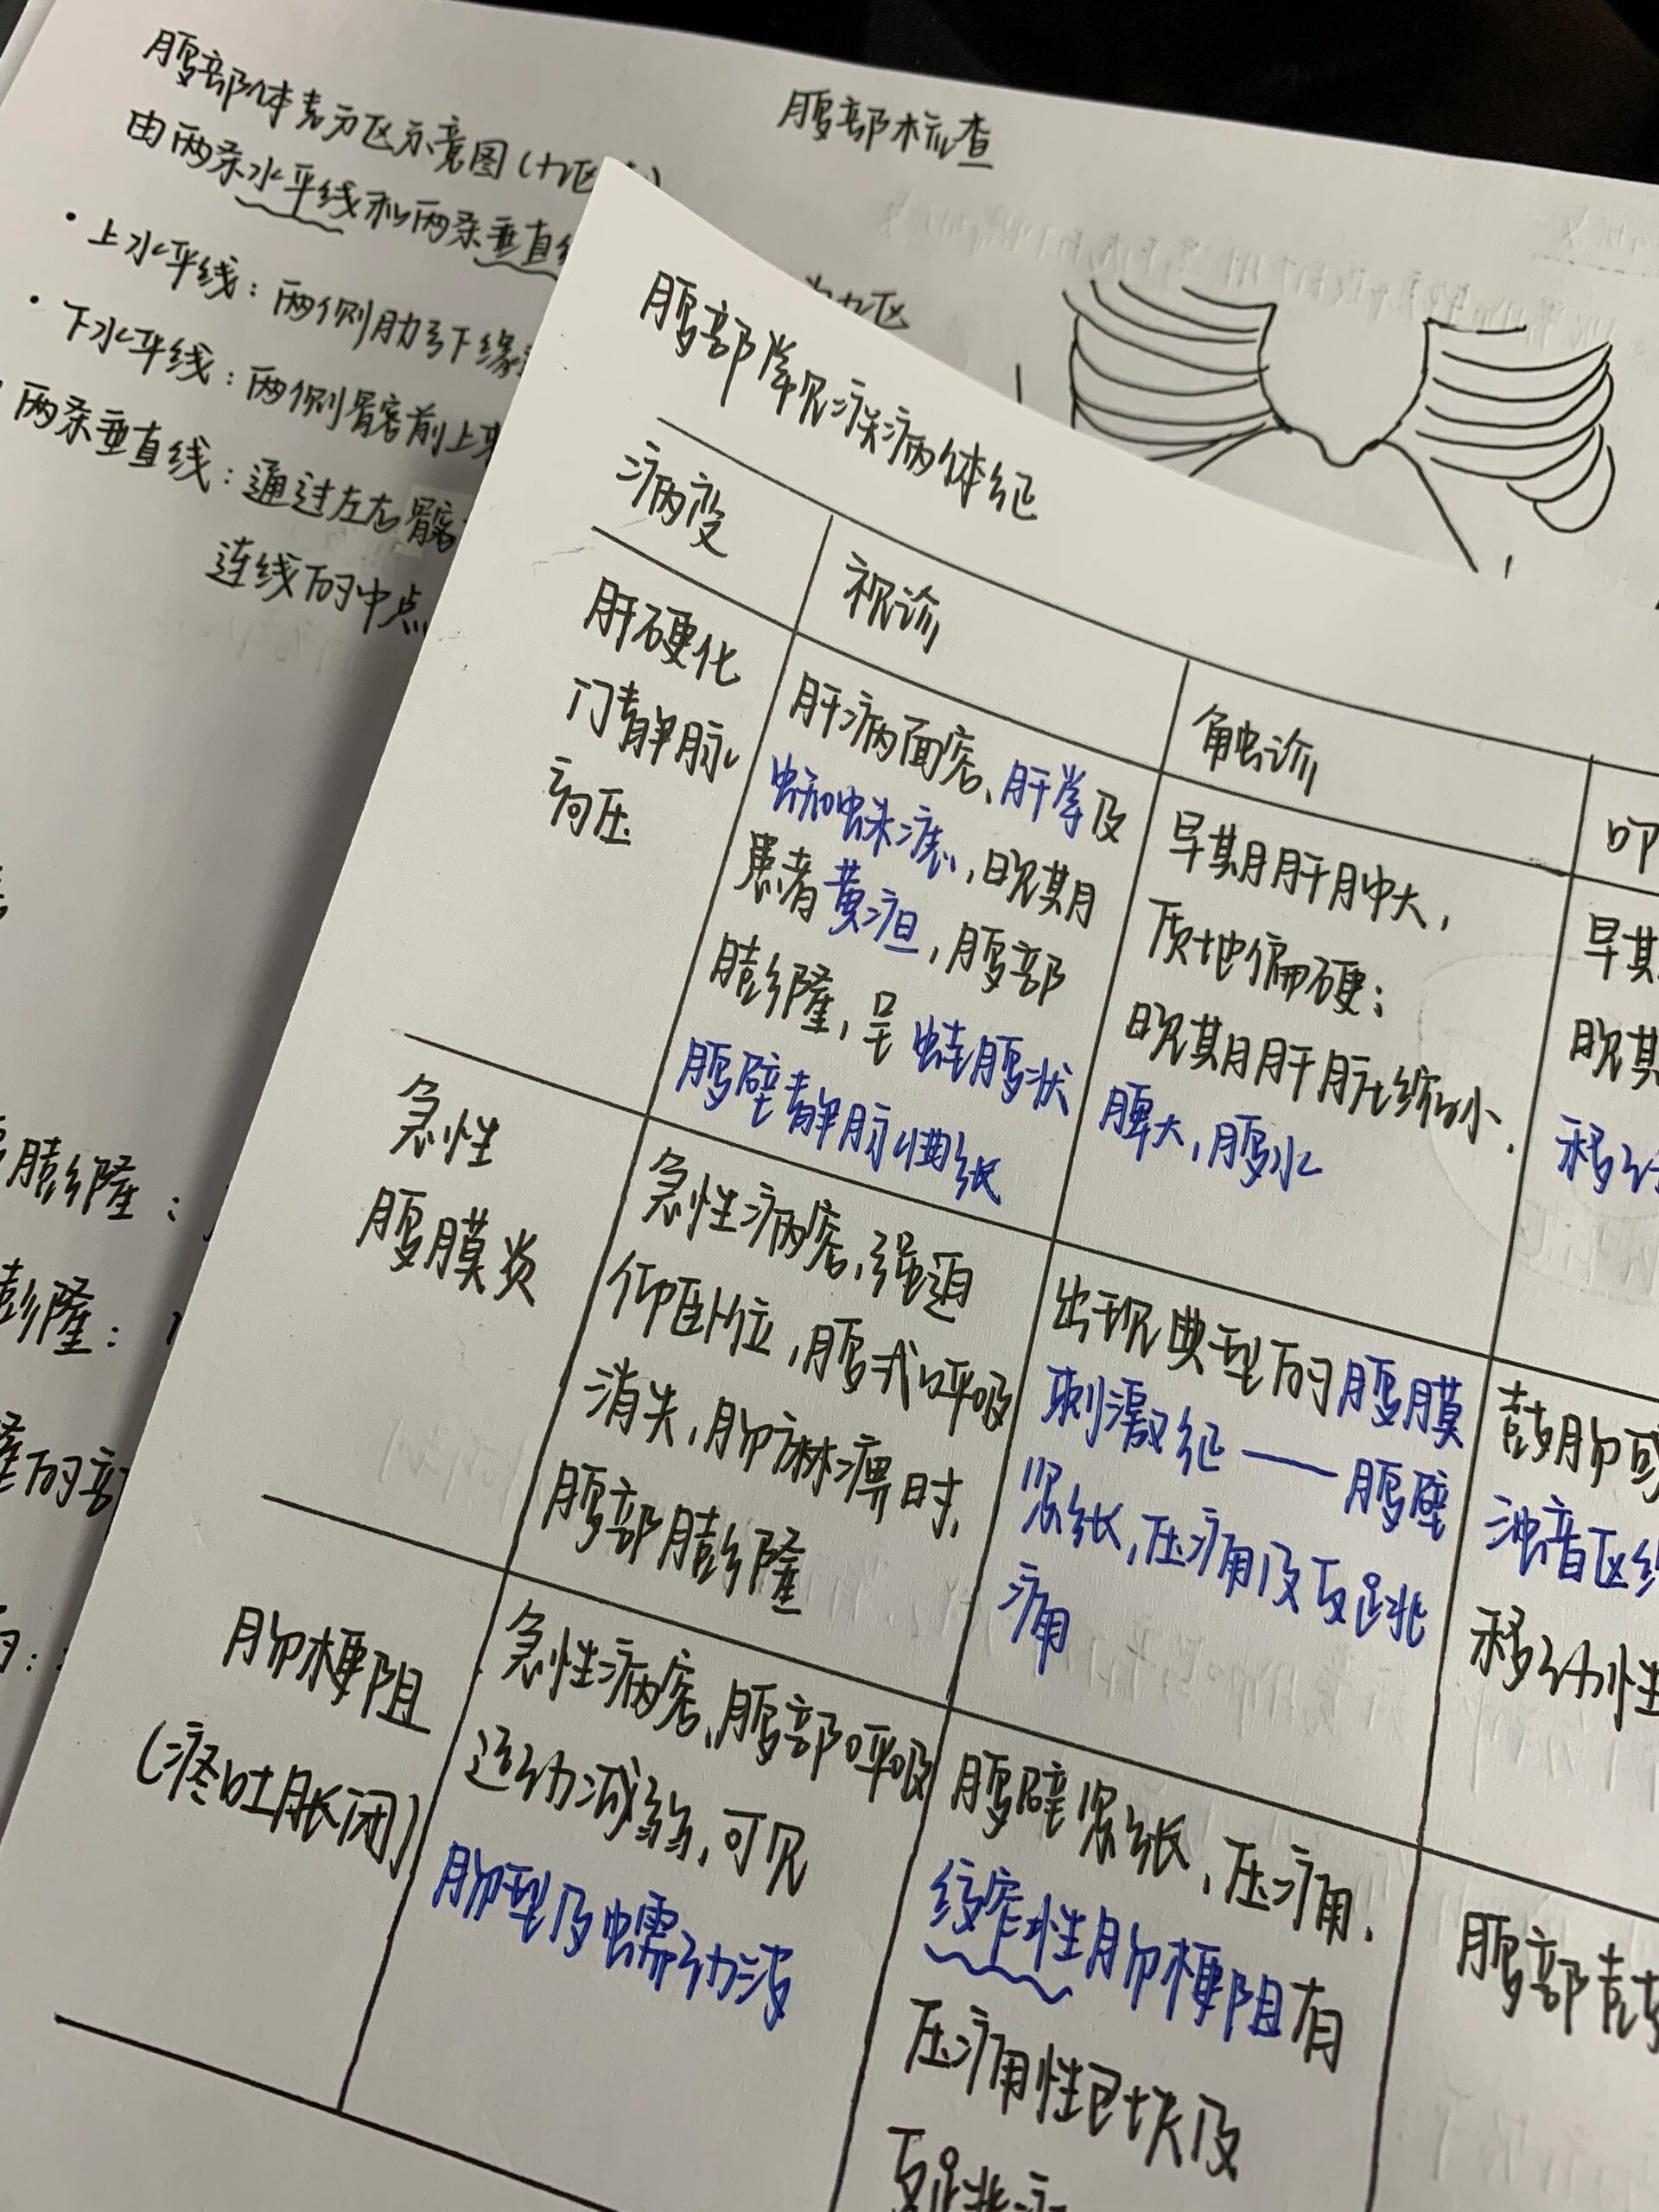 腹部检查
腹部体表分区示意图(九区
由两条水平线和两条垂直线
为九区
· 上水平线：两侧肋弓下缘
· 下水平线：两侧髂前上棘
· 两条垂直线：通过左右髂
连线的中点
膨隆：
膨隆：
隆的部
腹部常见疾病体征
病变
视诊
触诊
叩
肝硬化
门静脉
高压
肝病面容、肝掌及
蜘蛛痣，晚期
患者黄疸，腹部
膨隆，呈蛙腹状
腹壁静脉曲张
早期肝肿大，
质地偏硬；
晚期肝脏缩小，
脾大，腹水
早期
晚期
移动
急性
腹膜炎
急性病容，强迫
仰卧位，腹式呼吸
消失，肠麻痹时，
腹部膨隆
出现典型的腹膜
刺激征——腹壁
紧张，压痛及反跳
痛
鼓肠或
浊音区缩
移动性
肠梗阻
(疼吐胀闭)
急性病容、腹部呼吸
运动减弱，可见
肠型及蠕动波
腹壁紧张，压痛，
绞窄性肠梗阻有
压痛性包块及
反跳痛
腹部鼓